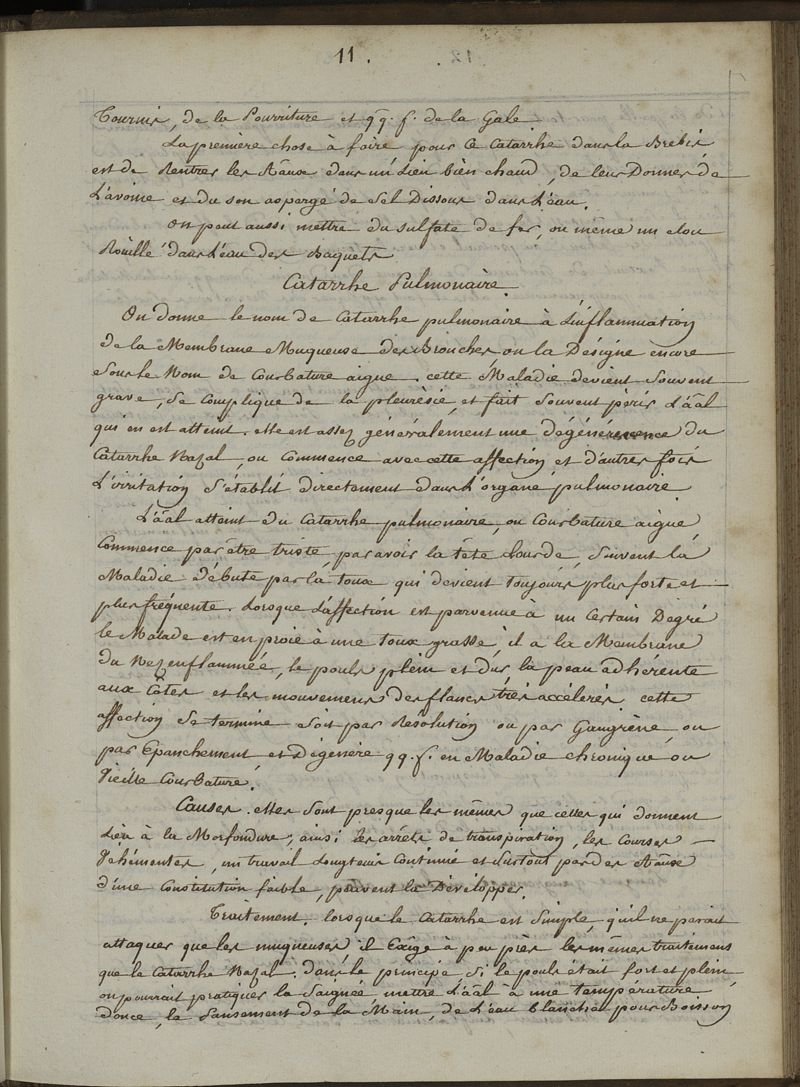 11.
Tournis, de la Pourriture et qq. f. de la Gale
La première chose à faire pour ce Catarrhe dans la Brebis,
est de Rentrer les aãux dans un Lieu bien chaud, de leur Donner de
L'avoine et du son aspergé de Sel Dissous dans L'éau.
On peut aussi mettre du sulfate de fer, ou même un clou
Rouillé dans L'éau des Baquets
Catarrhe Pulmonaire.
On donne le nom de Catarrhe pulmonaire à L'inflammation
de la Membrane Muqueuse des Bronches, on la Désigne encore
Sous le Nom de Courbature aigue. cette Maladie devient Souvent
grave, Se Complique de la pleurésie, et fait Souvent périr L'aãl
qui en est atteint. elle est assez généralement une dégénérescence du
Catarrhe Nazal, ou Commence avec cette affection et d'autres fois
L'irritation S'établit directement dans L'organe pulmonaire.
L'aãl atteint du Catarrhe pulmonaire, ou Courbature aigue,
Commence par être triste, par avoir la tête Lourde, Souvent la
Maladie Débute par la toux qui devient toujours plus forte et
plus fréquente. Lorsque L'affection est parvenue à un Certain Degré
le Malade est en proie à une toux grasse, il a la Membrane
du Nez enflammée, le pouls plein et dur, la peau adhérente
aux Côtes et les mouvemens des flancs très accélerés. cette
affection Se termine Soit par Résolution ou par Gangrène, ou
par Epanchement, et Dégénère qq. f. en Maladie chronique, ou
Vieille Courbature.
Causes. elles Sont presque les mêmes que celles qui donnent
Lieu à la Morfondure, ainsi les arrêts de transpiration, les Courses
Véhémentes, un travail Longtems Continué et Surtout par des aãux
d'une Constitution faible, peuvent la Développer.
Traitement. lorsque le Catarrhe est Simple, qu'il ne parait
attaquer que les muqueuses, il Exige à peu près les mêmes traitemens
que le Catarrhe Nazal; dans le principe Si le pouls était fort et plein,
on pourrait pratiquer la Saignée, mettre L'aãl à une température
douce, le Pansement de la Main, de L'éau blanche pour Boisson